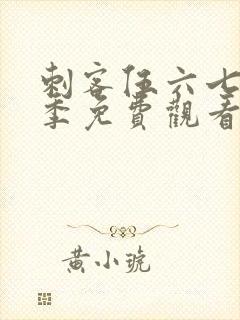 刺客伍六七
季免費觀看
黃小琥